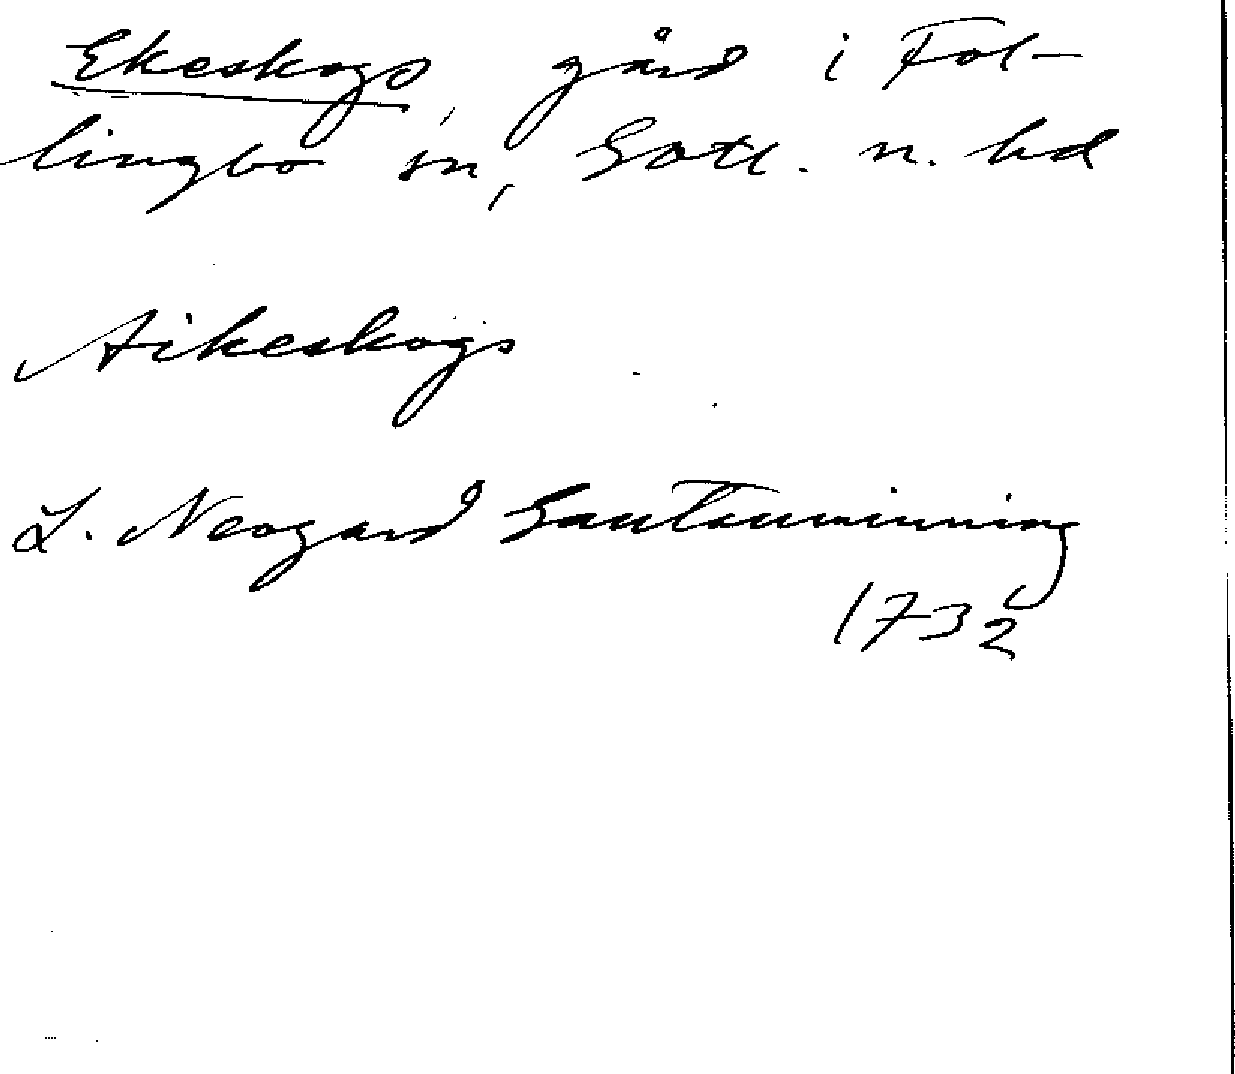 Ekeskogs, gård i Fol-
lingbo sn, Gotl. n. hd
Aikeskogs
L. Neogard Gautauminning
1732